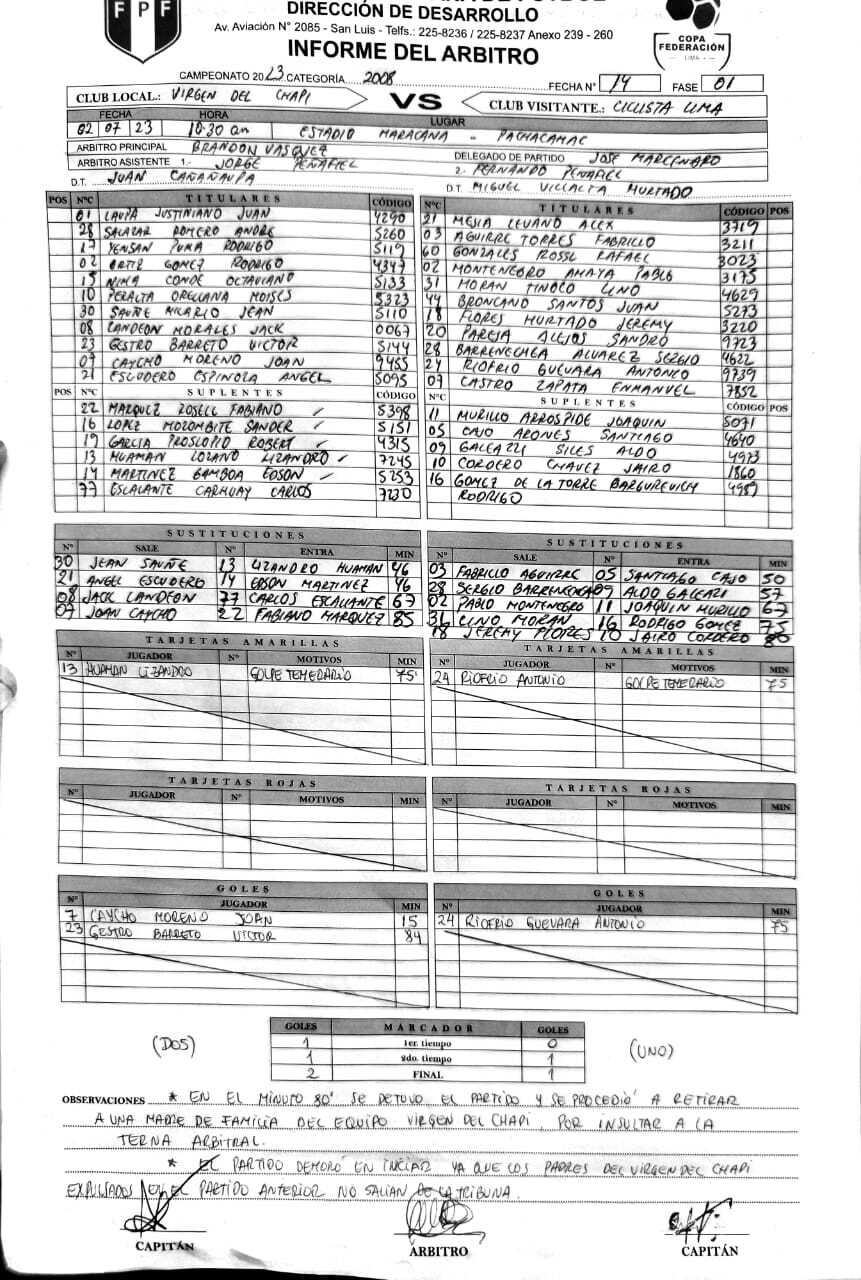 FPF
DIRECCIÓN DE DESARROLLO
Av. Aviación N° 2085 - San Luis - Telfs.: 225-8236 / 225-8237 Anexo 239 - 260
INFORME DEL ARBITRO
COPA FEDERACIÓN
LIMA
CAMPEONATO 2023 CATEGORÍA 2008 FECHA N° 14 FASE 01
CLUB LOCAL.: VIRGEN DEL CHAPI VS CLUB VISITANTE.: CICLISTA LIMA
FECHA HORA LUGAR
02 07 23 10:30 am ESTADIO MARACANA - PACHACAMAC
ARBITRO PRINCIPAL BRANDON VASQUEZ DELEGADO DE PARTIDO JOSE MARCENARO
ARBITRO ASISTENTE 1.- JORGE PEÑAFIEL 2.- FERNANDO PEÑAFIEL
D.T. JUAN CAÑAÑAUPA D.T. MIGUEL VILLALTA HURTADO
POS N°C TITULARES CÓDIGO N°C TITULARES CÓDIGO POS
01 LAUPA JUSTINIANO JUAN 4290 21 MEJIA LEVANO ALEX 3719
28 SALAZAR ROMERO ANDRE 5260 03 AGUIRRE TORRES FABRILLO 3211
17 YENSAN PUMA RODRIGO 5119 60 GONZALES ROSSL RAFAEL 3023
02 ORTIZ GOMEZ RODRIGO 4347 02 MONTENEGRO AMAYA PABLO 3175
15 NINA CONDE OCTAVIANO 5133 31 MORAN TINOCO LINO 4629
10 PERALTA ORELLANA MOISES 5323 44 BRONCANO SANTOS JUAN 5273
30 SAUÑE MICARIO JEAN 5110 18 FLORES HURTADO JEREMY 3220
08 LANDEON MORALES JACK 0067 20 PAREJA ALEJOS SANDRO 9723
23 GESTRO BARRETO VICTOR 5144 28 BARRENECHEA ALVAREZ SERGIO 4622
07 CAYCHO MORENO JOAN 9455 24 RIOFRIO GUEVARA ANTONIO 9739
21 ESCUDERO ESPINOZA ANGEL 5095 07 CASTRO ZAPATA ENMANUEL 7852
POS N°C SUPLENTES CÓDIGO N°C SUPLENTES CÓDIGO POS
22 MARQUEZ ROSELL FABIANO ✓ 5398 11 MURILLO ARROSPIDE JOAQUIN 5071
16 LOPEZ MOZOMBITE SANDER ✓ 5151 05 CAJO ARONES SANTIAGO 4640
19 GARCIA PROSLOPIO ROBERT ✓ 4315 09 GALEAZZI SILES ALDO 4973
13 HUAMAN LOZANO LIZANDRO ✓ 7245 10 CORDERO CHAVEZ JAIRO 1860
14 MARTINEZ GAMBOA EDSON ✓ 5253 16 GOMEZ DE LA TORRE BARGUREVICH 4989
77 ESCALANTE CARHUAY CARLOS 7230 RODRIGO
SUSTITUCIONES SUSTITUCIONES
N° SALE N° ENTRA MIN N° SALE N° ENTRA MIN
30 JEAN SAUÑE 13 LIZANDRO HUAMAN 46 03 FABRILLO AGUIRRE 05 SANTIAGO CAJO 50
21 ANGEL ESCUDERO 14 EDSON MARTINEZ 46 28 SERGIO BARRENECHEA 09 ALDO GALEAZI 57
08 JACK LANDEON 77 CARLOS ESCALANTE 67 02 PABLO MONTENEGRO 11 JOAQUIN MURILLO 67
07 JOAN CAYCHO 22 FABIANO MARQUEZ 85 31 LINO MORAN 16 RODRIGO GOMEZ 75
18 JEREMY FLORES 10 JAIRO CORDERO 80
TARJETAS AMARILLAS TARJETAS AMARILLAS
N° JUGADOR N° MOTIVOS MIN N° JUGADOR N° MOTIVOS MIN
13 HUAMAN LIZANDRO GOLPE TEMERARIO 75' 24 RIOFRIO ANTONIO GOLPE TEMERARIO 75
TARJETAS ROJAS TARJETAS ROJAS
N° JUGADOR N° MOTIVOS MIN N° JUGADOR N° MOTIVOS MIN
GOLES GOLES
N° JUGADOR MIN N° JUGADOR MIN
7 CAYCHO MORENO JOAN 15 24 RIOFRIO GUEVARA ANTONIO 75
23 GESTRO BARRETO VICTOR 84
GOLES MARCADOR GOLES
1 1er. tiempo 0
(DOS) 1 2do. tiempo 1 (UNO)
2 FINAL 1
OBSERVACIONES * EN EL MINUTO 80' SE DETUVO EL PARTIDO Y SE PROCEDIO' A RETIRAR
A UNA MADRE DE FAMILIA DEL EQUIPO VIRGEN DEL CHAPI, POR INSULTAR A LA
TERNA ARBITRAL.
* EL PARTIDO DEMORÓ EN INICIAR YA QUE LOS PADRES DEL VIRGEN DEL CHAPI
EXPULSADOS EN EL PARTIDO ANTERIOR NO SALIAN DE LA TRIBUNA.
CAPITÁN ÁRBITRO CAPITÁN